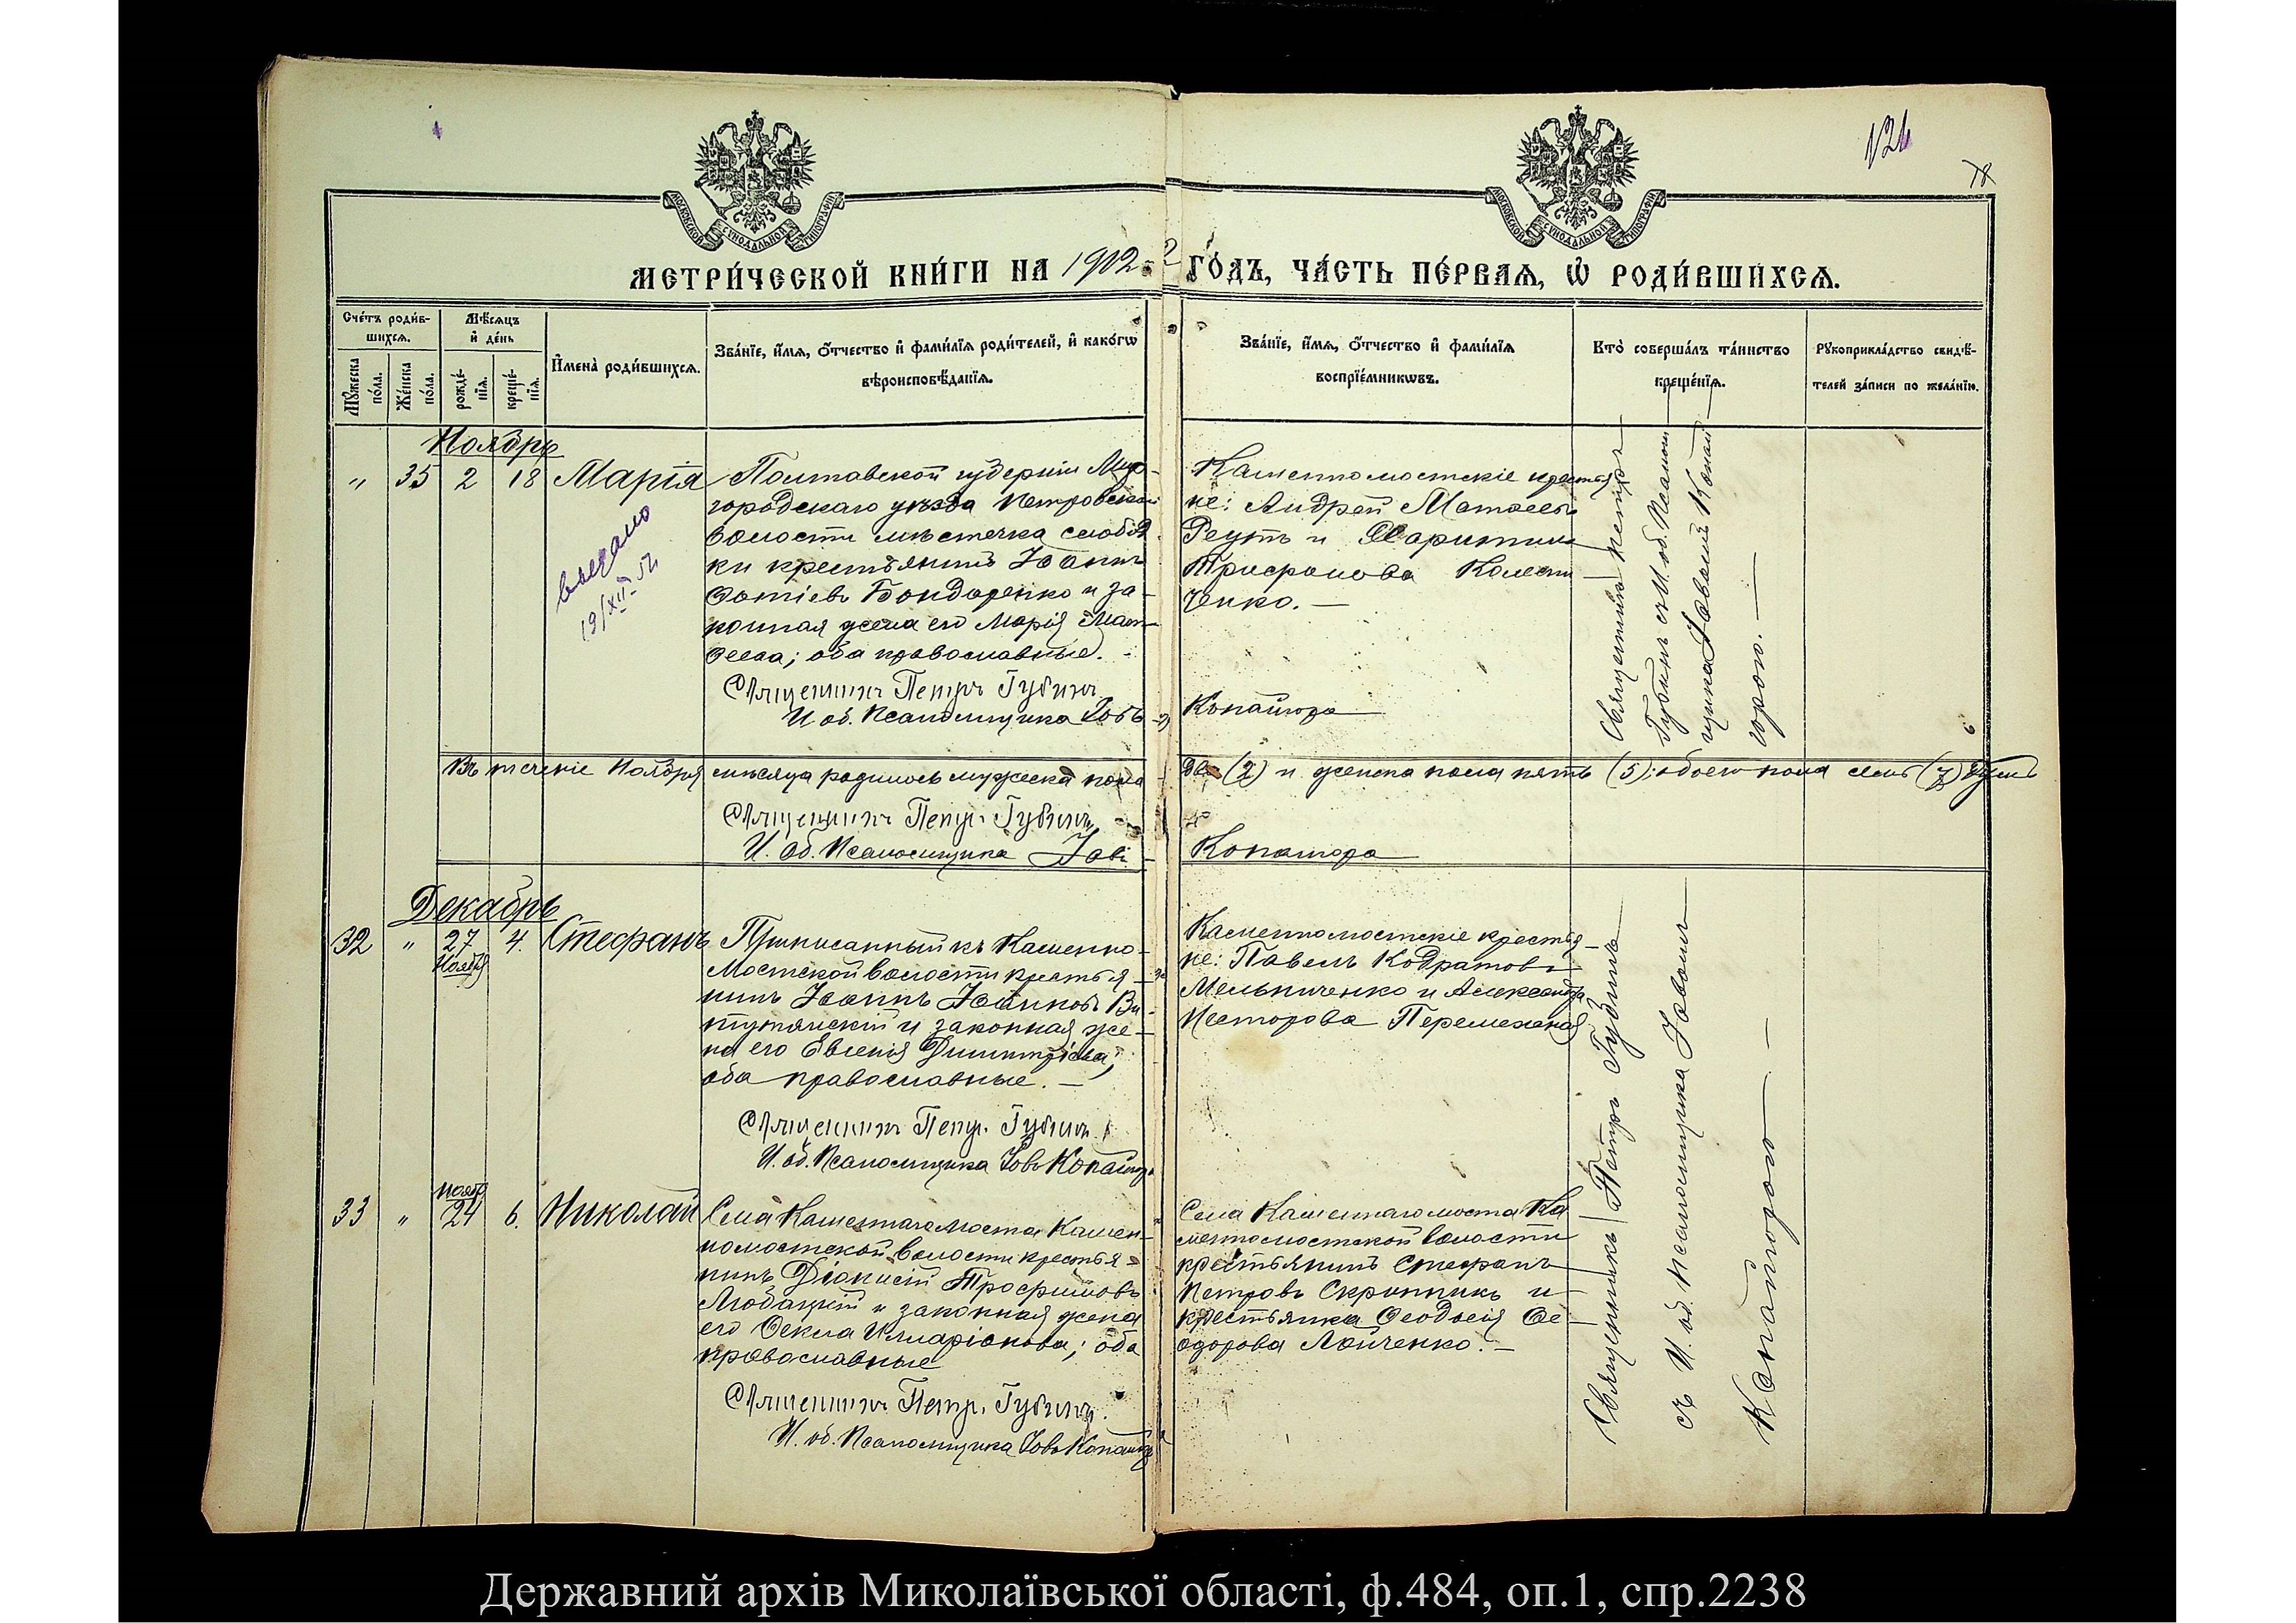 126
78
МОСКОВСКОЙ СУНОДАЛЬНОЙ ТИПОГРАФІИ
МОСКОВСКОЙ СУНОДАЛЬНОЙ ТИПОГРАФІИ
МЕТРИ́ЧЕСКОЙ КНИ́ГИ НА 1902 ГО́ДЪ, ЧА́СТЬ ПЕ́РВАѦ, Ѡ РОДИ́ВШИХСѦ.
Сче́тъ роди́в-
шихсѧ.
Мѣ́сѧцъ
и҆ де́нь
Мꙋ́жеска
по́ла.
Же́нска
по́ла.
рожде́-
нїѧ.
креще́-
нїѧ.
И҆мена̀ роди́вшихсѧ.
Зва́нїе, и҆́мѧ, ѻ҆́тчество и҆ фами́лїѧ роди́телей, и҆ како́гѡ
вѣроисповѣ́данїѧ.
Зва́нїе, и҆́мѧ, ѻ҆́тчество и҆ фами́лїѧ
воспрїе́мникѡвъ.
Кто̀ соверша́лъ та́инство
креще́нїѧ.
Рꙋкоприкла́дство свидѣ́-
телей за́писи по жела́нїю.
Ноябрь
" 35 2 18 Марія
Полтавской губерніи Мир-
городскаго уѣзда Петровской
волости мѣстечка слобод
ки крестьянинъ Іоаннъ
Фотіевъ Бондаренко и за-
конная жена его Марія Мат-
ѳеева; оба православные.
Священникъ Петръ Губинъ
И. об. Псаломщика Іовъ Копайгора
выдано
19/XII
Каменномостскіе крестья
не: Андрей Матѳеевъ
Реутъ и Харитина
Трифонова Колесни-
ченко.
Священникъ Петръ
Губинъ съ И. об. Псалом
щика Іовомъ Копай
горою.
Въ теченіе Ноября мѣсяца родилось мужеска пола два (2) и женска пола пять (5); обоего пола семь (7) душъ
Священникъ Петръ Губинъ
И. об. Псаломщика Іовъ Копайгора
Декабрь
32 " 27 4. Стефанъ
Ноября
Приписанный къ Каменно-
мостской волости крестья-
нинъ Іоаннъ Іоанновъ Ви-
тулянскій и законная же-
на его Евгенія Димитріева;
оба православные.
Священникъ Петръ Губинъ
И. об. Псаломщика Іовъ Копайгора
Каменномостскіе крестья-
не: Павелъ Кодратовъ
Мельниченко и Александра
Несторова Перемежная
нояб
33 " 24 6. Николай
Села Каменнаго моста Камен-
номостской волости крестья-
нинъ Діонисій Трофимовъ
Любацкій и законная жена
его Ѳекла Илларіонова; оба
православные
Священникъ Петръ Губинъ
И. об. Псаломщика Іовъ Копайгора
Села Каменнаго моста Ка
менномостской волости
крестьянинъ Стефанъ
Петровъ Скрипникъ и
крестьянка Ѳеодосія Ѳе-
одорова Лойченко.
Священникъ Петръ Губинъ
съ И. об. псаломщика Іовомъ
Копайгорою
Державний архів Миколаївської області, ф.484, оп.1, спр.2238